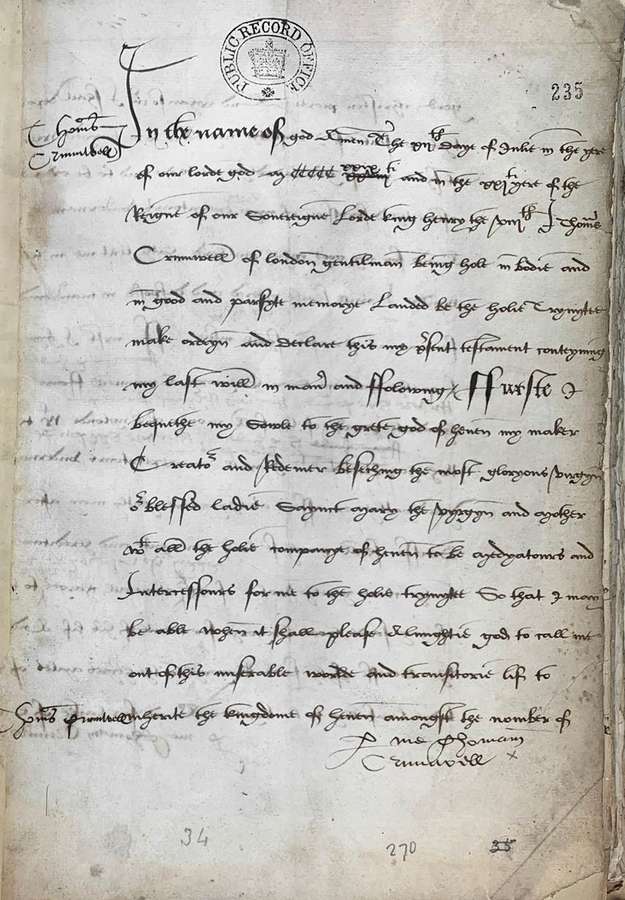 PUBLIC RECORD OFFICE
235
Thom̃s
Crumwell
In the name of god Amen The xijth Daye of Julie in the yere
of our lorde god M CCCCC xxix and in the xxjti yere of the
Reigne of our Souereigne Lorde king henry the viijth I Thom̃s
Crumwell of london gentilman being hole in bodie and
in good and parfyte memorye Lauded be the holie Trynytee
make ordeyn and declare this my p̃sent testament conteyning
my last will in maner and ffolowing / ffurste I
bequethe my Sowle to the grete god of heuen my maker
Creatoʳ and Redemer beseching the most gloryous virgyn
oʳ blessed ladie Saynct Mary the vyrgyn and Mother
wt all the holie companye of heuen to be Medyatours and
Intercessours for me to the holie trynytee So that I may
be able when it shall please Almightie god to call me
out of this miserable worlde and transitorie lif to
inherite the kingdome of heuen amongst the nomber of
Thom̃s Crumwell
P me Thomam
Crumwell
34
270
35